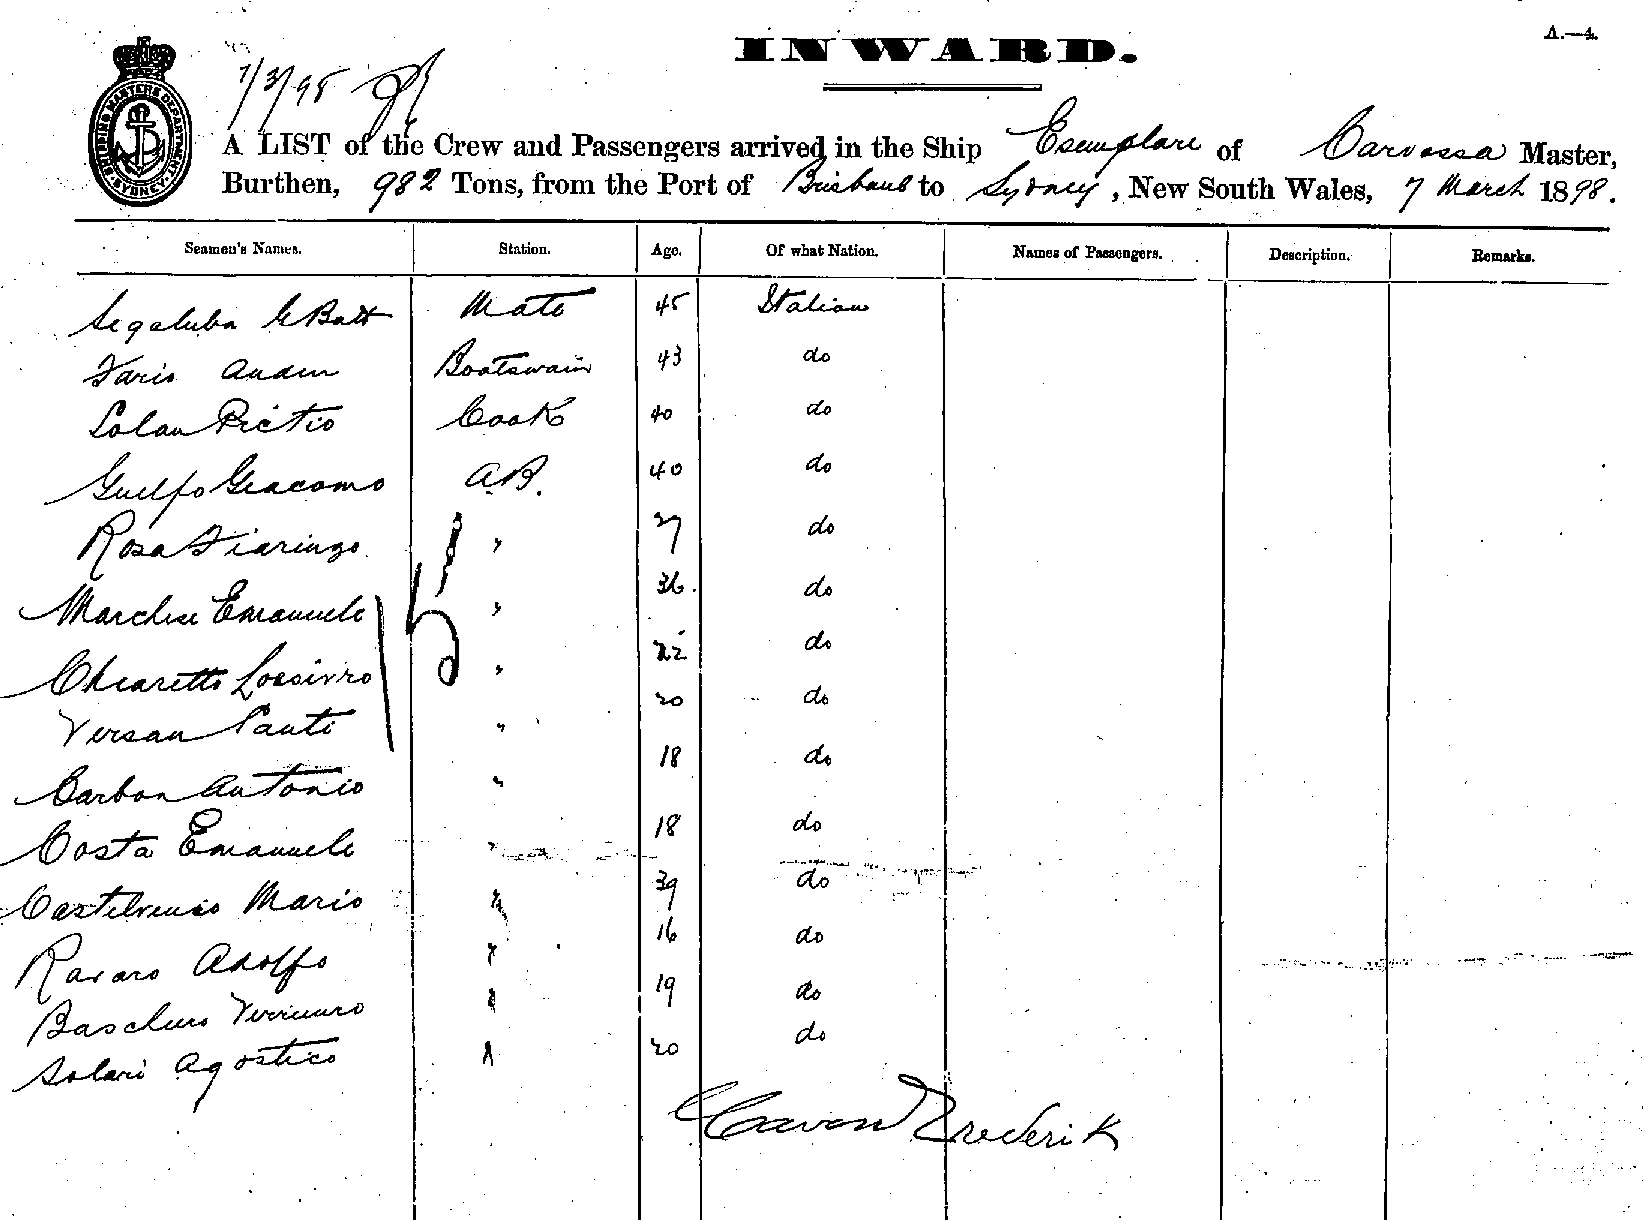 INWARD.
A.—4.
7/3/98
SHIPPING MASTERS DEPARTMENT SYDNEY
A LIST of the Crew and Passengers arrived in the Ship Esemplare of Carvassa Master,
Burthen, 982 Tons, from the Port of Brisbane to Sydney, New South Wales, 7 March 1898.
Seamen's Names. Station. Age. Of what Nation. Names of Passengers. Description. Remarks.
Mate 45 Italian
Boatswain 43 do
Cook 40 do
Guelfo Giacomo A.B. 40 do
Rosa " 27 do
Marchese Emanuele " 36. do
Chiaretto " 22 do
Versan " 20 do
Carbon Antonio " 18 do
Costa Emanuele " 18 do
Mario " 39 do
Ravaro Adolfo " 16 do
" 19 do
Solari Agostico " 20 do
51
Frederik